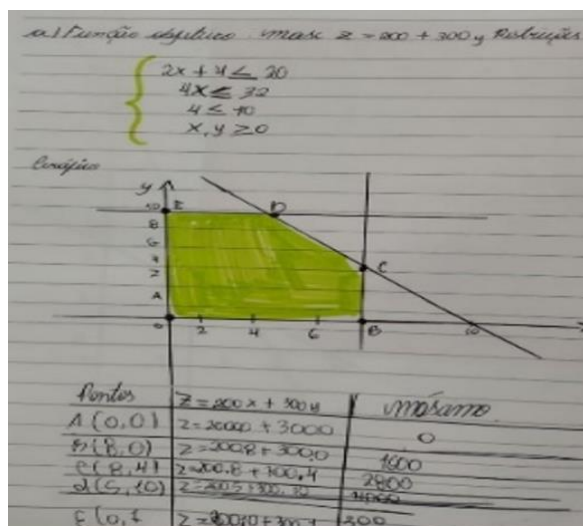 a) Função objetivo max z = 200 + 300y Restrições
2x + y ≤ 20
4x ≤ 32
y ≤ 10
x, y ≥ 0
Gráfico
y
10 E D
8
6
4 C
2
A
0 2 4 6 B 10
Pontos z = 200x + 300y máximo
A (0,0) z = 200.0 + 300.0 0
B (8,0) z = 200.8 + 300.0 1600
C (8,4) z = 200.8 + 300.4 2800
d (5,10) z = 200.5 + 300.10 4000